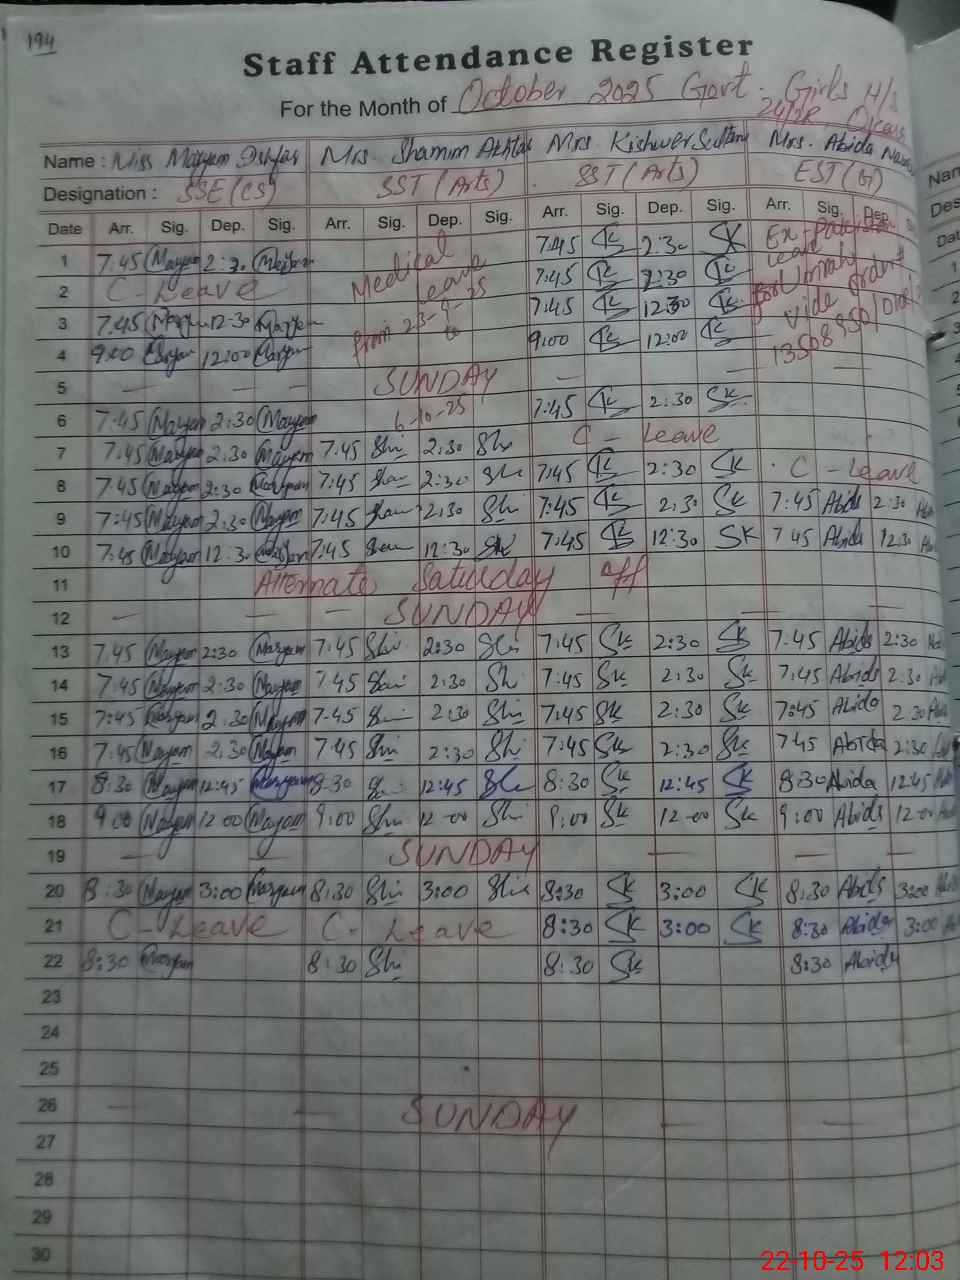 194
Staff Attendance Register
For the Month of October 2025 Govt. Girls H/s
24/2R Okara
Name : Miss Maryam Ishfaq Mrs. Shamim Akhtar Mrs. Kishwer Sultana Mrs. Abida
Designation : SSE (CS) SST (Arts) SST (Arts) EST (G)
Date Arr. Sig. Dep. Sig. Arr. Sig. Dep. Sig. Arr. Sig. Dep. Sig. Arr. Sig. Dep.
1 7:45 Maryam 2:30 Maryam Medical 7:45 2:30 SK Ex-Pakistan
2 C-Leave Leave 7:45 2:30 Leave for Umrah
3 7:45 Maryam 12:30 Maryam from 23-9-25 7:45 12:30 vide order #
4 9:00 Maryam 12:00 Maryam to 9:00 12:00
5 — — SUNDAY — — —
6 7:45 Maryam 2:30 Maryam 6-10-25 7:45 2:30 SK
7 7:45 Maryam 2:30 Maryam 7:45 Sha 2:30 Sha C - Leave
8 7:45 Maryam 2:30 Maryam 7:45 Sha 2:30 Sha 7:45 2:30 SK C - Leave
9 7:45 Maryam 2:30 Maryam 7:45 Sham 2:30 Sha 7:45 2:30 SK 7:45 Abida 2:30
10 7:45 Maryam 12:30 Maryam 7:45 Sham 12:30 Sha 7:45 12:30 SK 7 45 Abida 12:30
11 Alternate Saturday off
12 — — — SUNDAY — — —
13 7:45 Maryam 2:30 Maryam 7:45 Sha 2:30 Sha 7:45 SK 2:30 SK 7:45 Abida 2:30
14 7:45 Maryam 2:30 Maryam 7:45 Sha 2:30 Sh 7:45 SK 2:30 SK 7:45 Abida 2:30
15 7:45 Maryam 2:30 Maryam 7-45 Sha 2:30 Sha 7:45 SK 2:30 SK 7:45 Abida 2:30
16 7:45 Maryam 2:30 Maryam 7:45 Sha 2:30 Sha 7:45 SK 2:30 SK 7:45 Abida 2:30
17 8:30 Maryam 12:45 Maryam 8:30 Sha 12:45 Sha 8:30 SK 12:45 SK 8:30 Abida 12:45
18 9:00 Maryam 12 00 Maryam 9:00 Sha 12-00 Sha 9:00 SK 12-00 SK 9:00 Abida 12-00
19 — — SUNDAY — — —
20 8:30 Maryam 3:00 Maryam 8:30 Sha 3:00 Sha 8:30 SK 3:00 SK 8:30 Abida 3:00
21 C-Leave C- Leave 8:30 SK 3:00 SK 8:30 Abida 3:00
22 8:30 Maryam 8:30 Sha 8:30 SK 8:30 Abida
23
24
25
26 — — SUNDAY — —
27
28
29
30
22-10-25 12:03